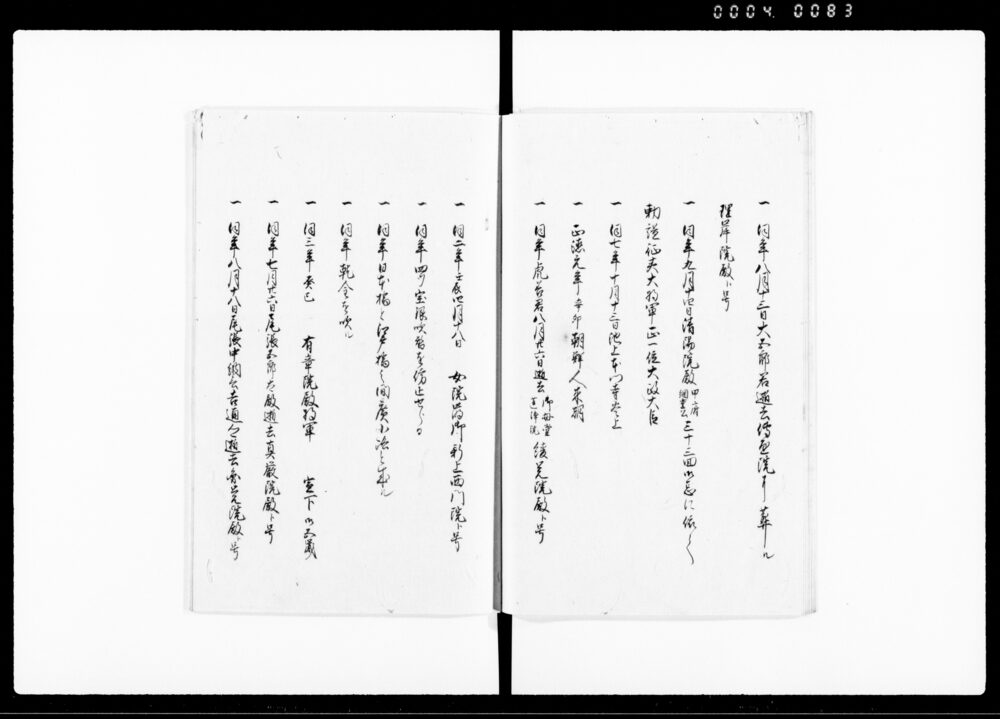 0004 0083
一 同年八月十三日大五郎君逝去傳通院ニ葬ル
理岸院殿ト号
一 同年九月十四日清揚院殿甲府綱重公三十三回御忌に依て
勅謚征夷大将軍正一位大政大臣
一 同七年十月十三日池上本門寺炎上
一 正徳元年辛卯朝鮮人来朝
一 同年虎吉君八月廿六日逝去御母堂蓮浄院 俊覚院殿ト号
一 同二年壬辰四月十八日 女院崩御新上西門院ト号
一 同年四ツ宝銀吹替を停止せらる
一 同年日本橋と江戸橋之間廣小路と成ル
一 同年乾金を吹ル
一 同三年癸巳 有章院殿将軍 宣下御五歳
一 同年七月廿六日尾張五郎太殿逝去真巌院殿ト号
一 同年八月十八日尾張中納言吉通公逝去 院殿ト号